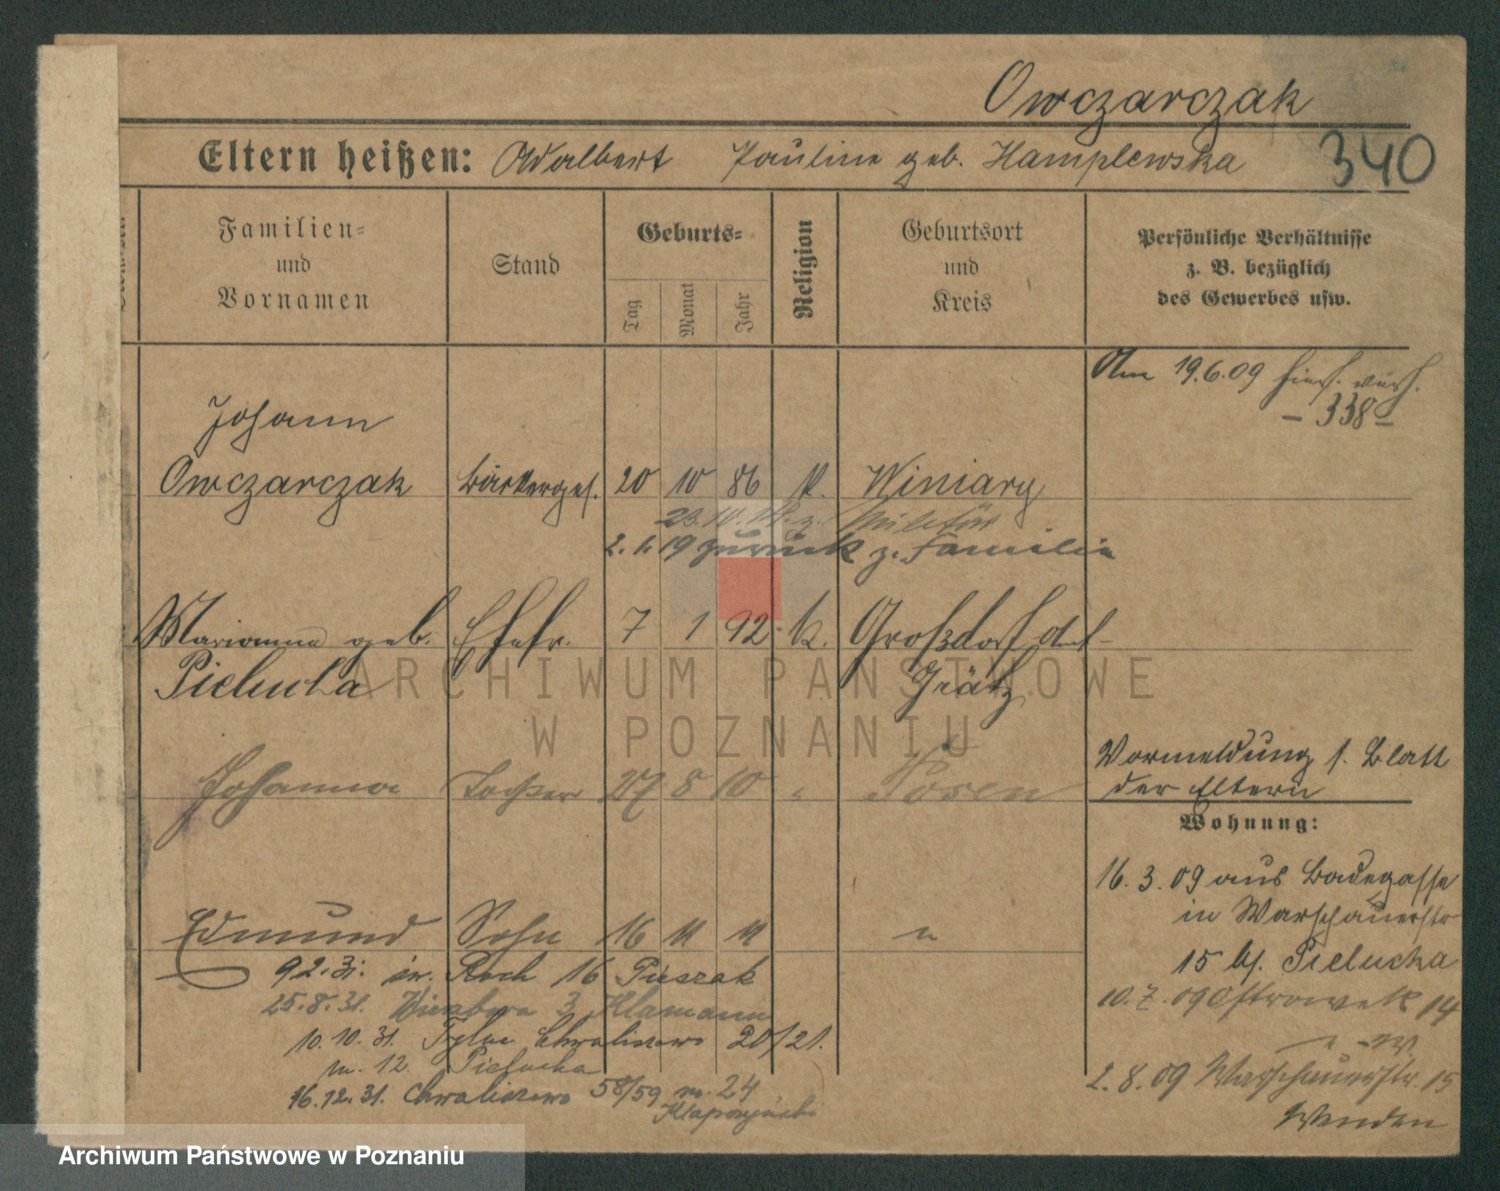 Owczarczak
Eltern heißen: Adalbert Pauline geb. Hamplewska
340
Familien=
und
Vornamen
Stand
Geburts=
Tag
Monat
Jahr
Religion
Geburtsort
und
Kreis
Persönliche Verhältnisse
z. B. bezüglich
des Gewerbes usw.
Am 19.6.09
– 338 –
Johann
Owczarczak Bäckerges. 20 10 86 k. Winiary
Militär
2. 1. 19 zurück z. Familie
Marianna geb. Ehefr. 7 1 92 k. Großdorf
Pielucha
Grätz
Johanna Tochter 27 8 10 " Posen
Vormeldung s. Blatt
der Eltern
Wohnung:
16. 3. 09 aus Badegasse
in Warschauerstr
15 bs. Pielucha
Edmund Sohn 16 11 11 "
9 2. 31. św. Roch 16 Puszak
25. 8. 31. 3 Klamann
10. 7. 09 Ostrowek 14
10. 10. 31. Tylne Chwaliszewo 20/21.
m. 12 Pielucha
2. 8. 09 Warschauerstr. 15
16. 12. 31. Chwaliszewo 58/59 m. 24
ARCHIWUM PAŃSTWOWE
W POZNANIU
Archiwum Państwowe w Poznaniu